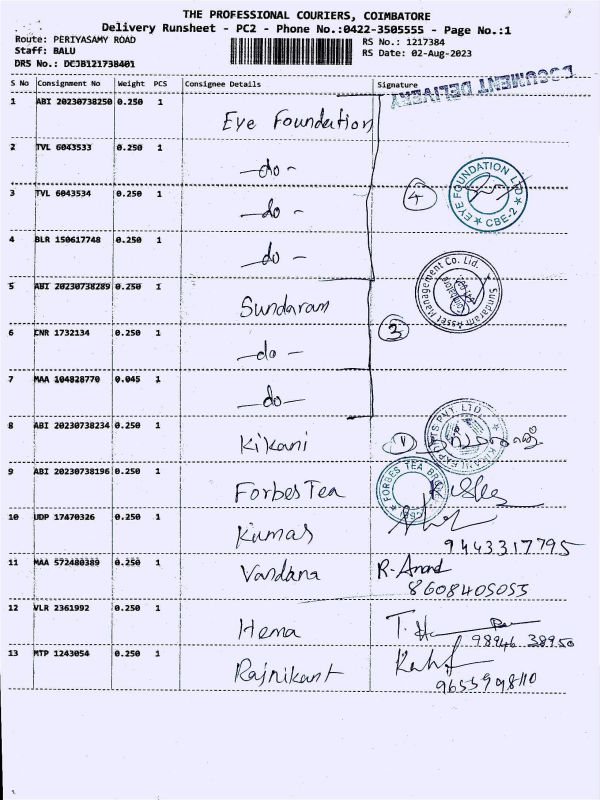 THE PROFESSIONAL COURIERS, COIMBATORE
Delivery Runsheet - PC2 - Phone No.:0422-3505555 - Page No.:1
Route: PERIYASAMY ROAD
RS No.: 1217384
Staff: BALU
RS Date: 02-Aug-2023
DRS No.: DCJB121738401
S No Consignment No Weight PCS Consignee Details Signature
DOCUMENT DELIVERY
1 ABI 20230738250 0.250 1 Eye Foundation
2 TVL 6043533 0.250 1 -do-
3 TVL 6043534 0.250 1 -do- 4
EYE FOUNDATION LTD ★ CBE-2 ★
4 BLR 150617748 0.250 1 -do-
5 ABI 20230738289 0.250 1 Sundaram
Sundaram Asset Management Co. Ltd.
6 CNR 1732134 0.250 1 -do- 3
7 MAA 104828770 0.045 1 -do-
8 ABI 20230738234 0.250 1 Kikani 1
PVT. LTD.
9 ABI 20230738196 0.250 1 Forbes Tea
FORBES TEA
10 UDP 17470326 0.250 1 Kumar
9443317795
11 MAA 572480389 0.250 1 Vandana R. Anand
8608405055
12 VLR 2361992 0.250 1 Hema
98946 38950
13 MTP 1243054 0.250 1 Rajnikant